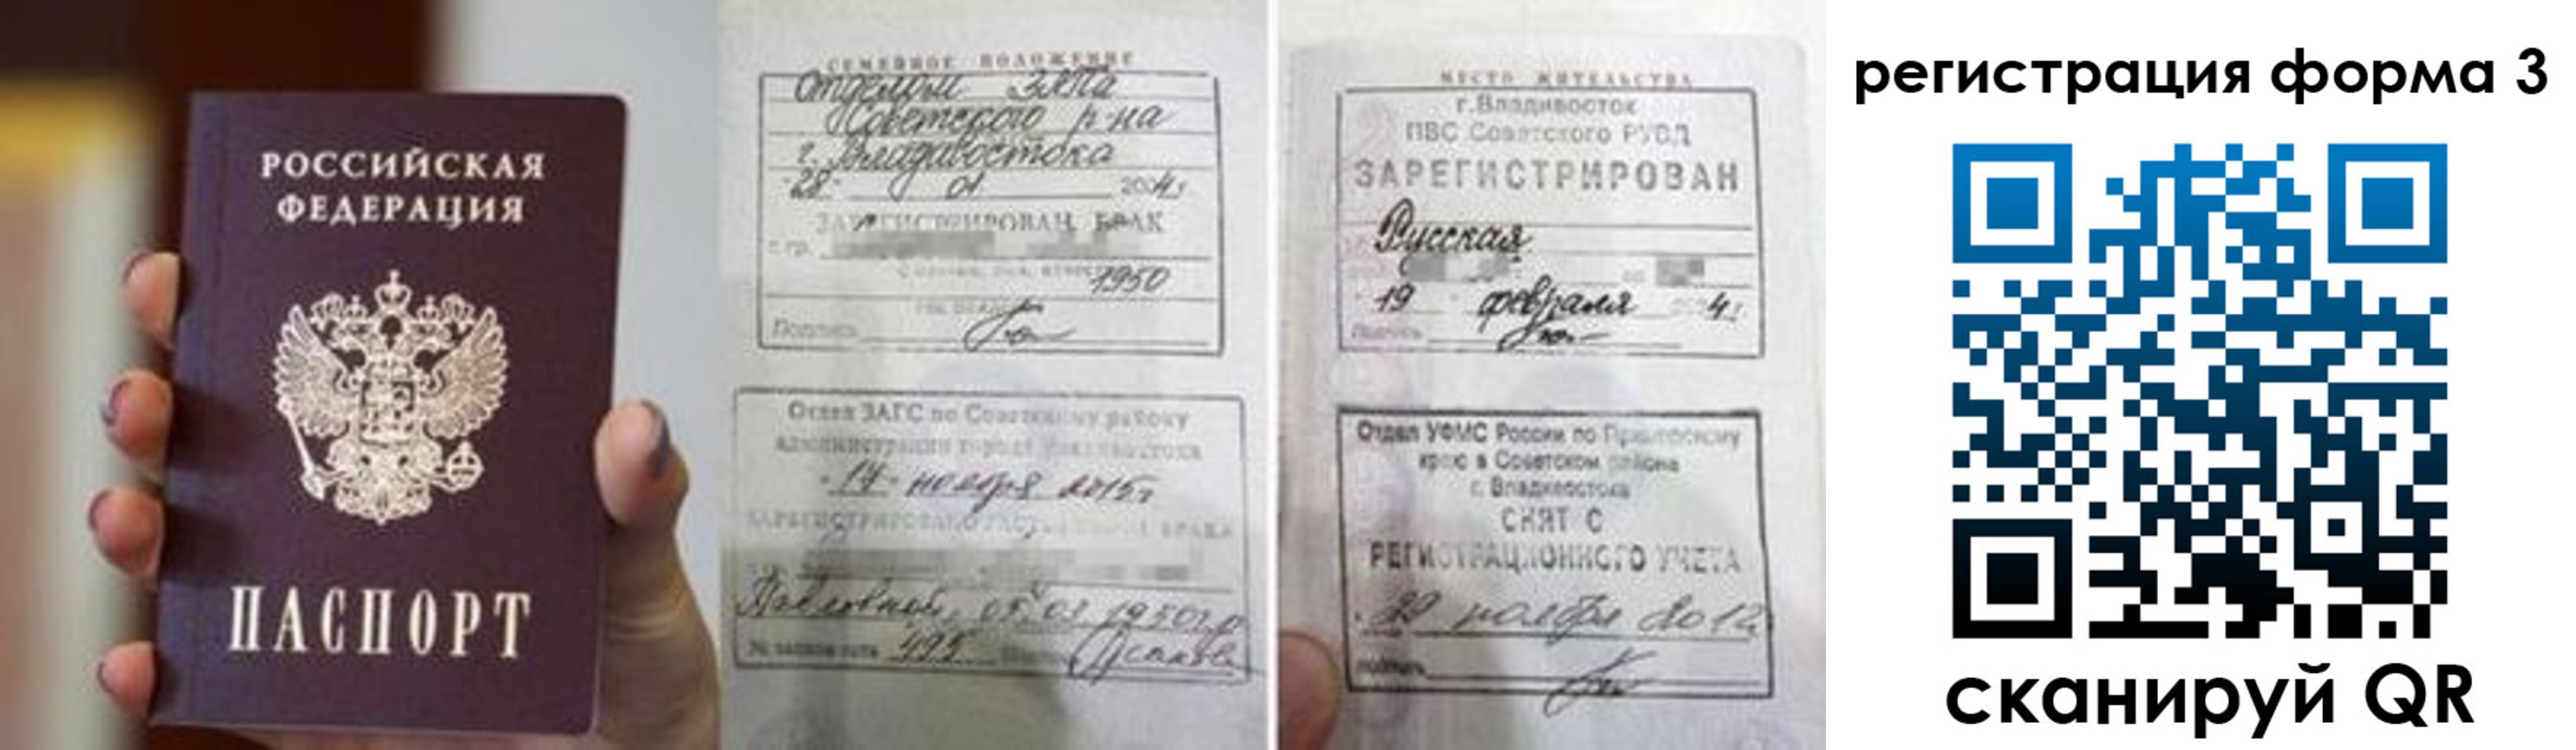 РОССИЙСКАЯ
ФЕДЕРАЦИЯ
ПАСПОРТ
СЕМЕЙНОЕ ПОЛОЖЕНИЕ
Отделом ЗАГСа
Советского р-на
г. Владивостока
"28" 01 2004 г.
ЗАРЕГИСТРИРОВАН БРАК
с гр.
1950
Подпись
Отдел ЗАГС по Советскому району
администрации города Владивостока
"17" ноября 2015 г.
ЗАРЕГИСТРИРОВАНО РАСТОРЖЕНИЕ БРАКА
Павловной, 05.03.1950 г.р.
№ записи акта 495
МЕСТО ЖИТЕЛЬСТВА
г.Владивосток
ПВС Советского РУВД
ЗАРЕГИСТРИРОВАН
Русская
19 февраля 4г.
Подпись
Отдел УФМС России по Приморскому
краю в Советском районе
г. Владивостока
СНЯТ С
РЕГИСТРАЦИОННОГО УЧЕТА
ноября 2012
подпись
регистрация форма 3
сканируй QR